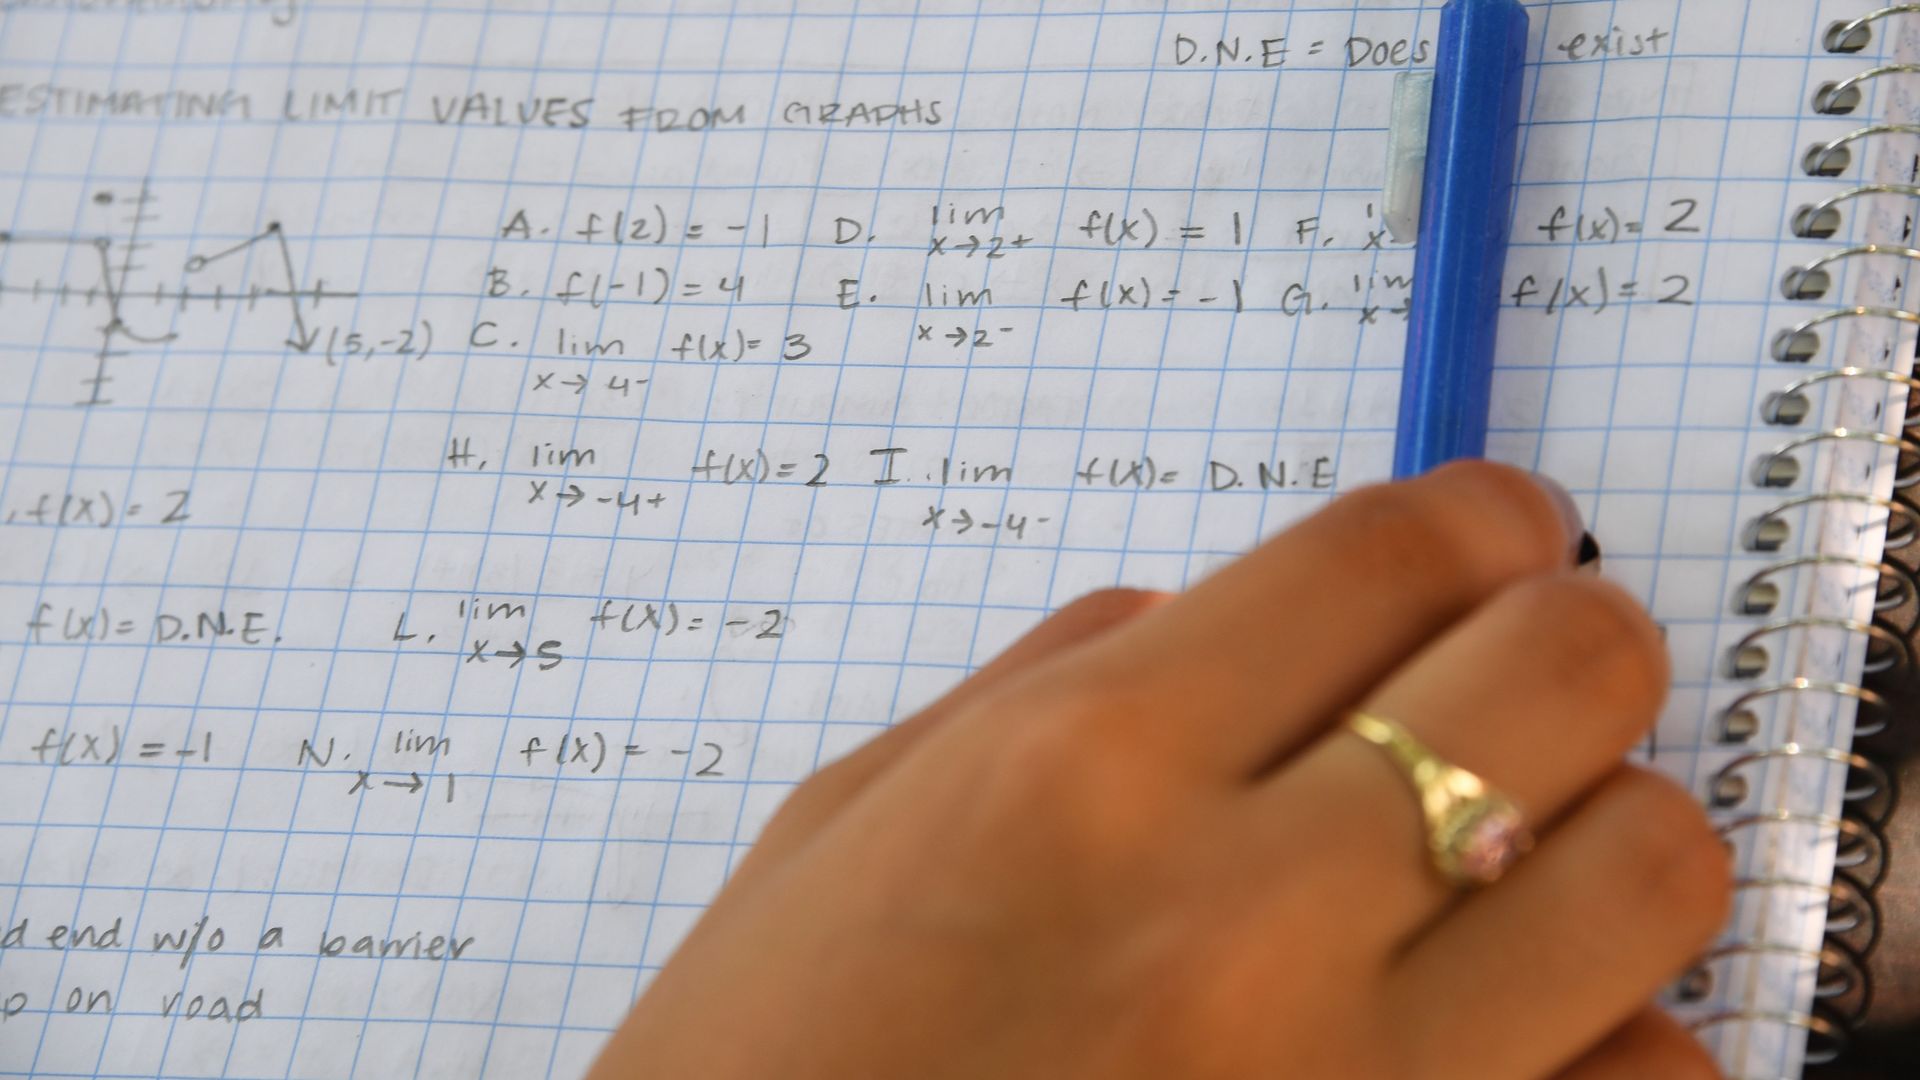 D.N.E = Does exist
ESTIMATING LIMIT VALUES FROM GRAPHS
A. f(2) = -1 D. lim x→2+ f(x) = 1 F. x f(x)= 2
B. f(-1) = 4 E. lim x→2- f(x) = -1 G. lim x→ f(x) = 2
(5,-2) C. lim x→ 4- f(x)= 3
H. lim x→-4+ f(x)= 2 I. lim x→-4- f(x)= D.N.E
f(x) = 2
f(x)= D.N.E. L. lim x→5 f(x)= -2
f(x) = -1 N. lim x→1 f(x) = -2
d end w/o a barrier
on road